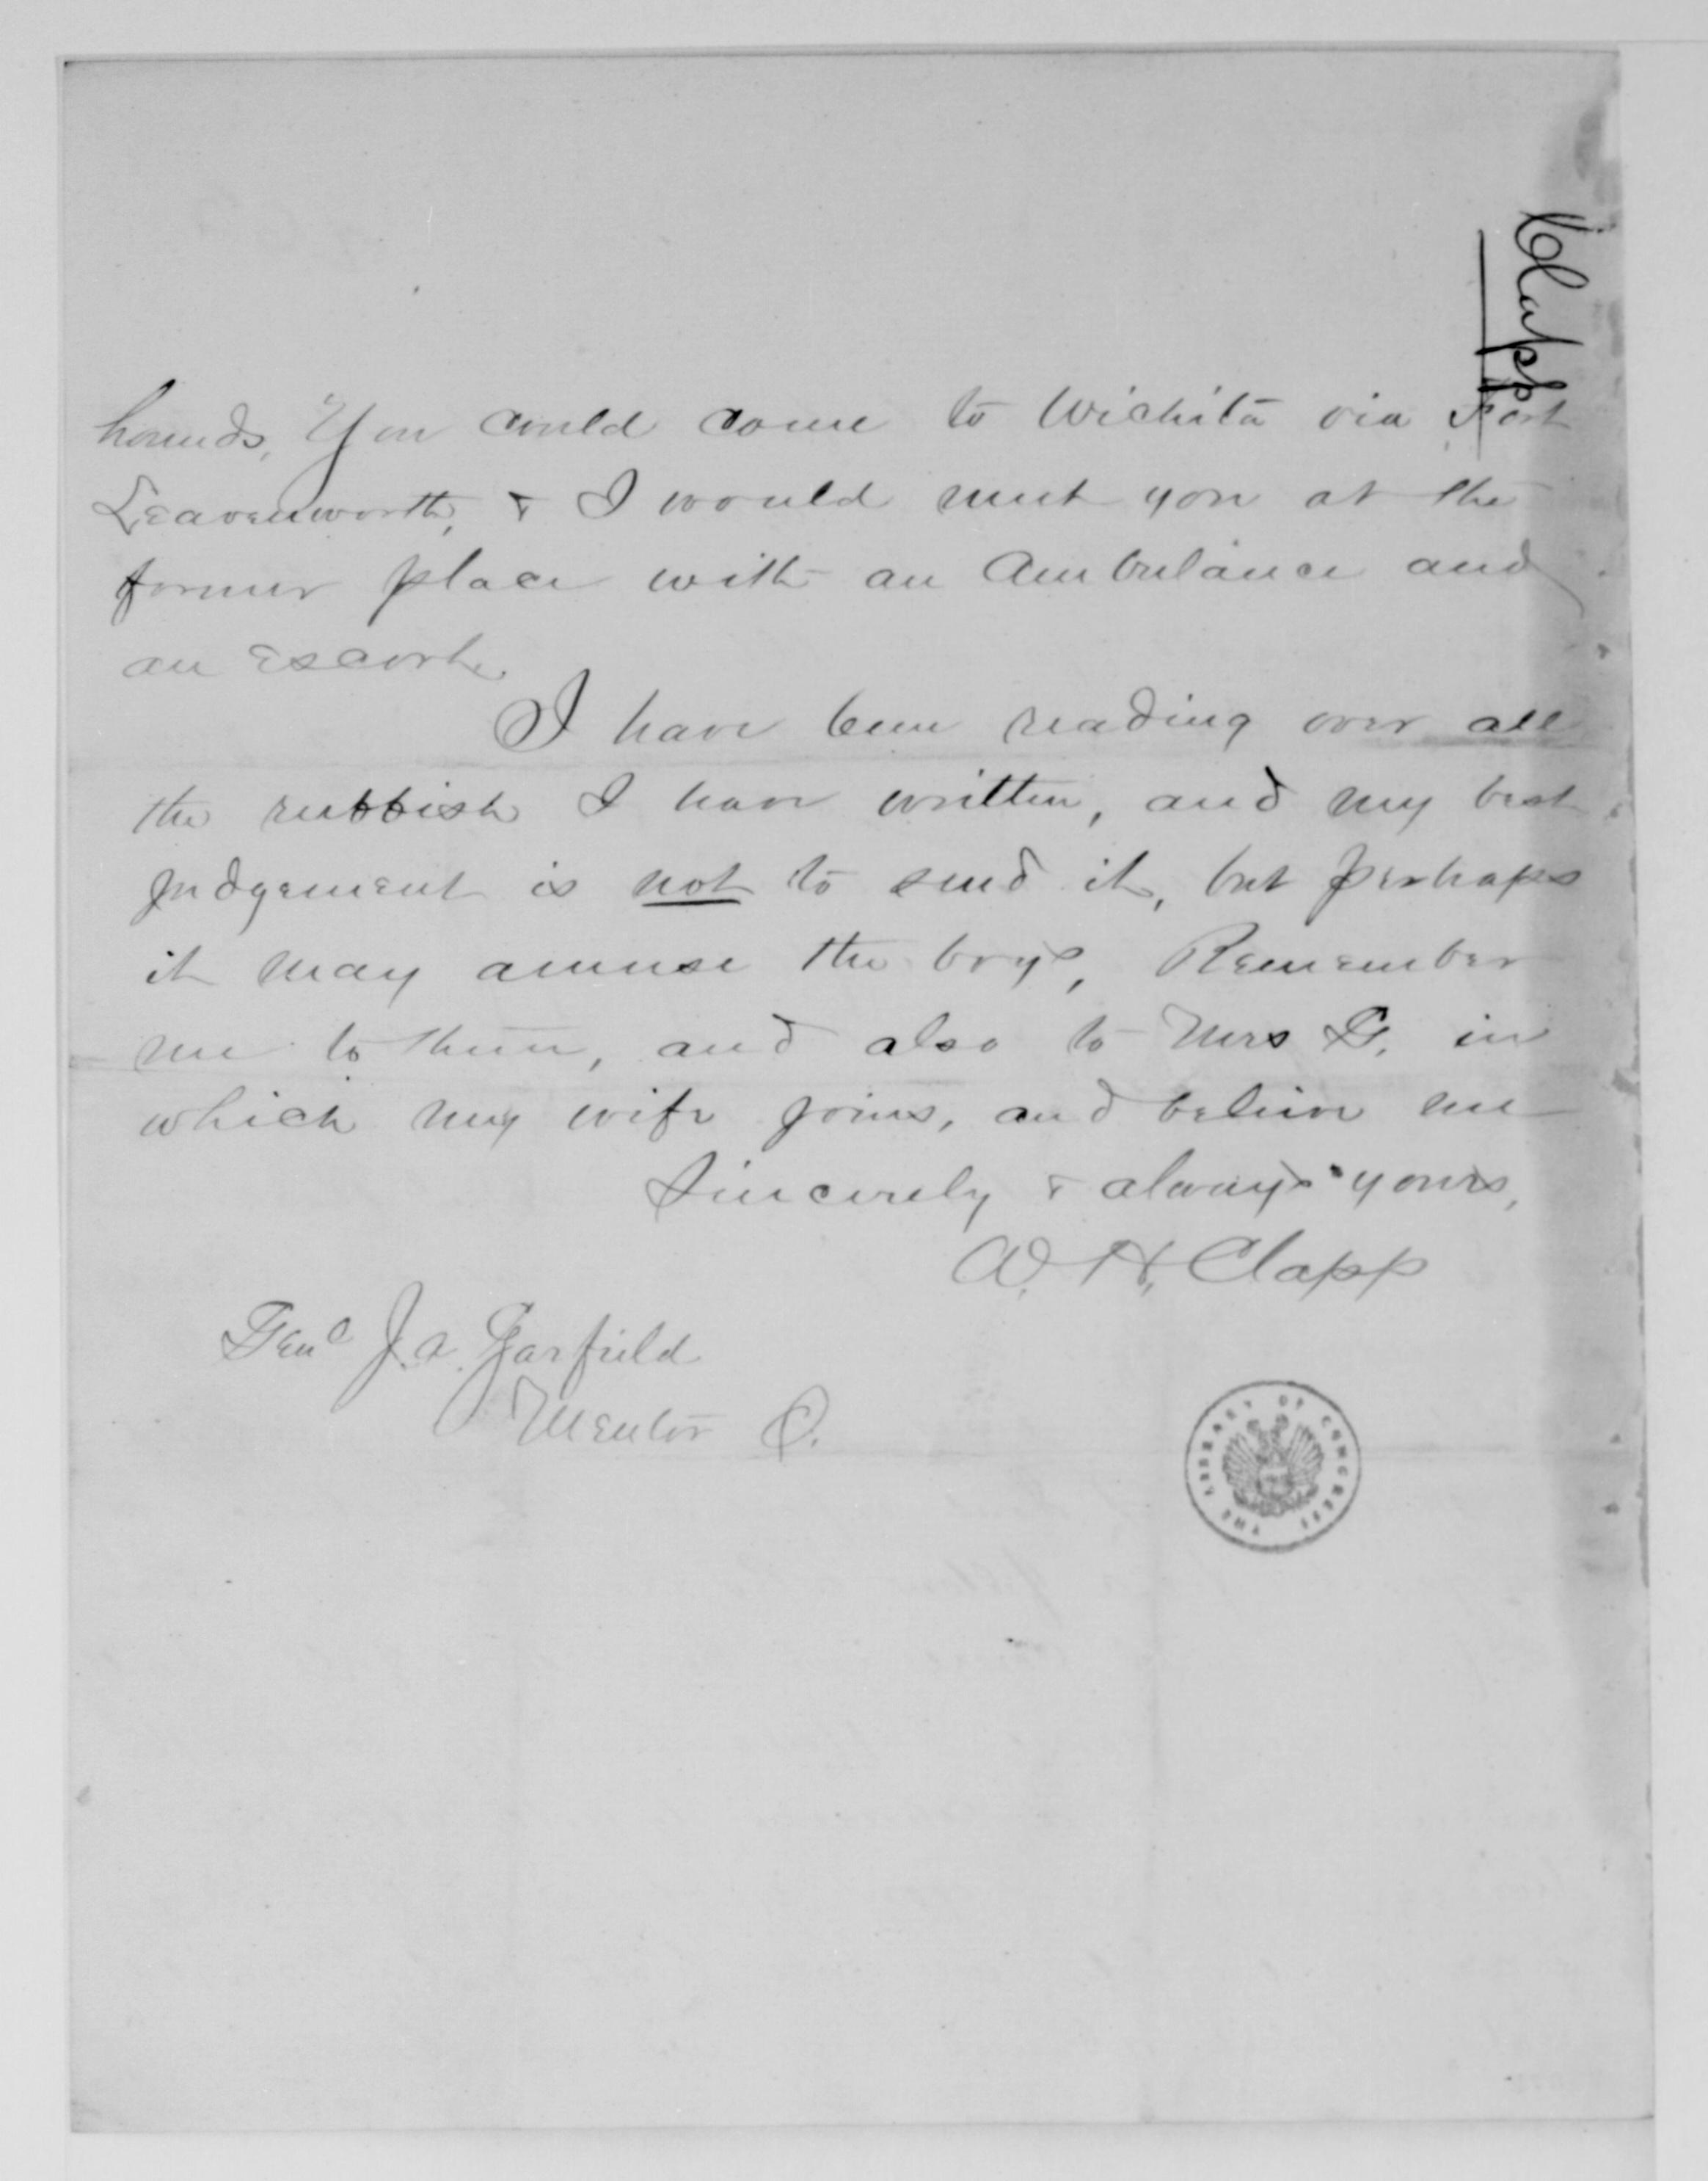 Clapp
hounds, You could come to Wichita via Fort
Leavenworth, & I would meet you at the
former place with an Ambulance and
an escort.
I have been reading over all
the rubbish I have written, and my best
judgement is not to send it, but perhaps
it may amuse the boys, Remember
me to them, and also to Mrs G. in
which my wife joins, and believe me
Sincerely & always yours,
W. H. Clapp
Genl J. A. Garfield
Mentor O.
THE LIBRARY OF CONGRESS